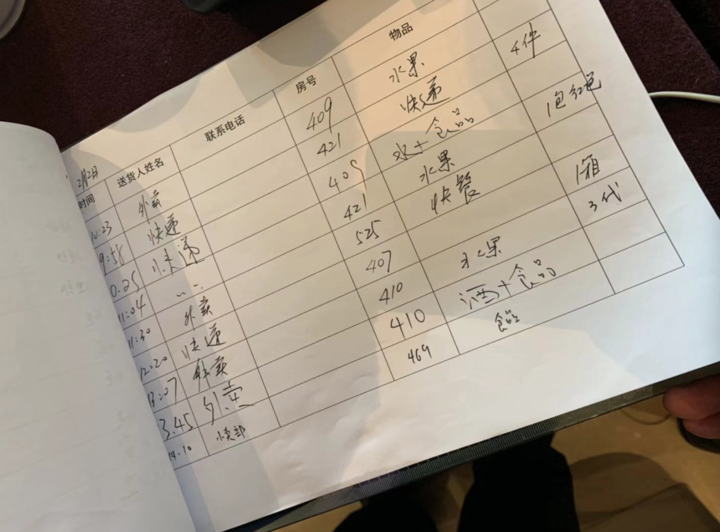 2月2日
时间 送货人姓名 联系电话 房号 物品
外卖 409 水果 4件
9:58 快递 421 快递
快递 409 水+食品 1包红色
11:04 421 水果
11:30 外卖 525 快餐 1箱
12:20 快递 407 3代
外卖 410 水果
3:45 外卖 410 酒+食品
14:10 469